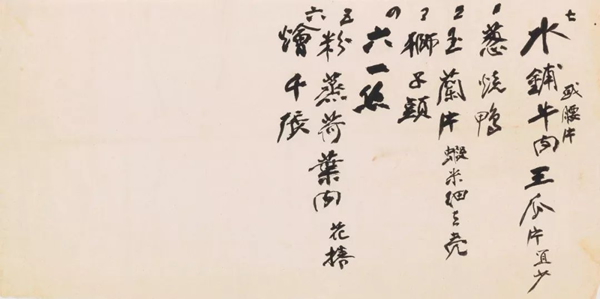 七水鋪牛肉王瓜片宜少
或腰片
1葱燒鴨
2玉蘭片蝦米細
3獅子頭
六一絲
五粉蒸荷葉肉花
六燴千張